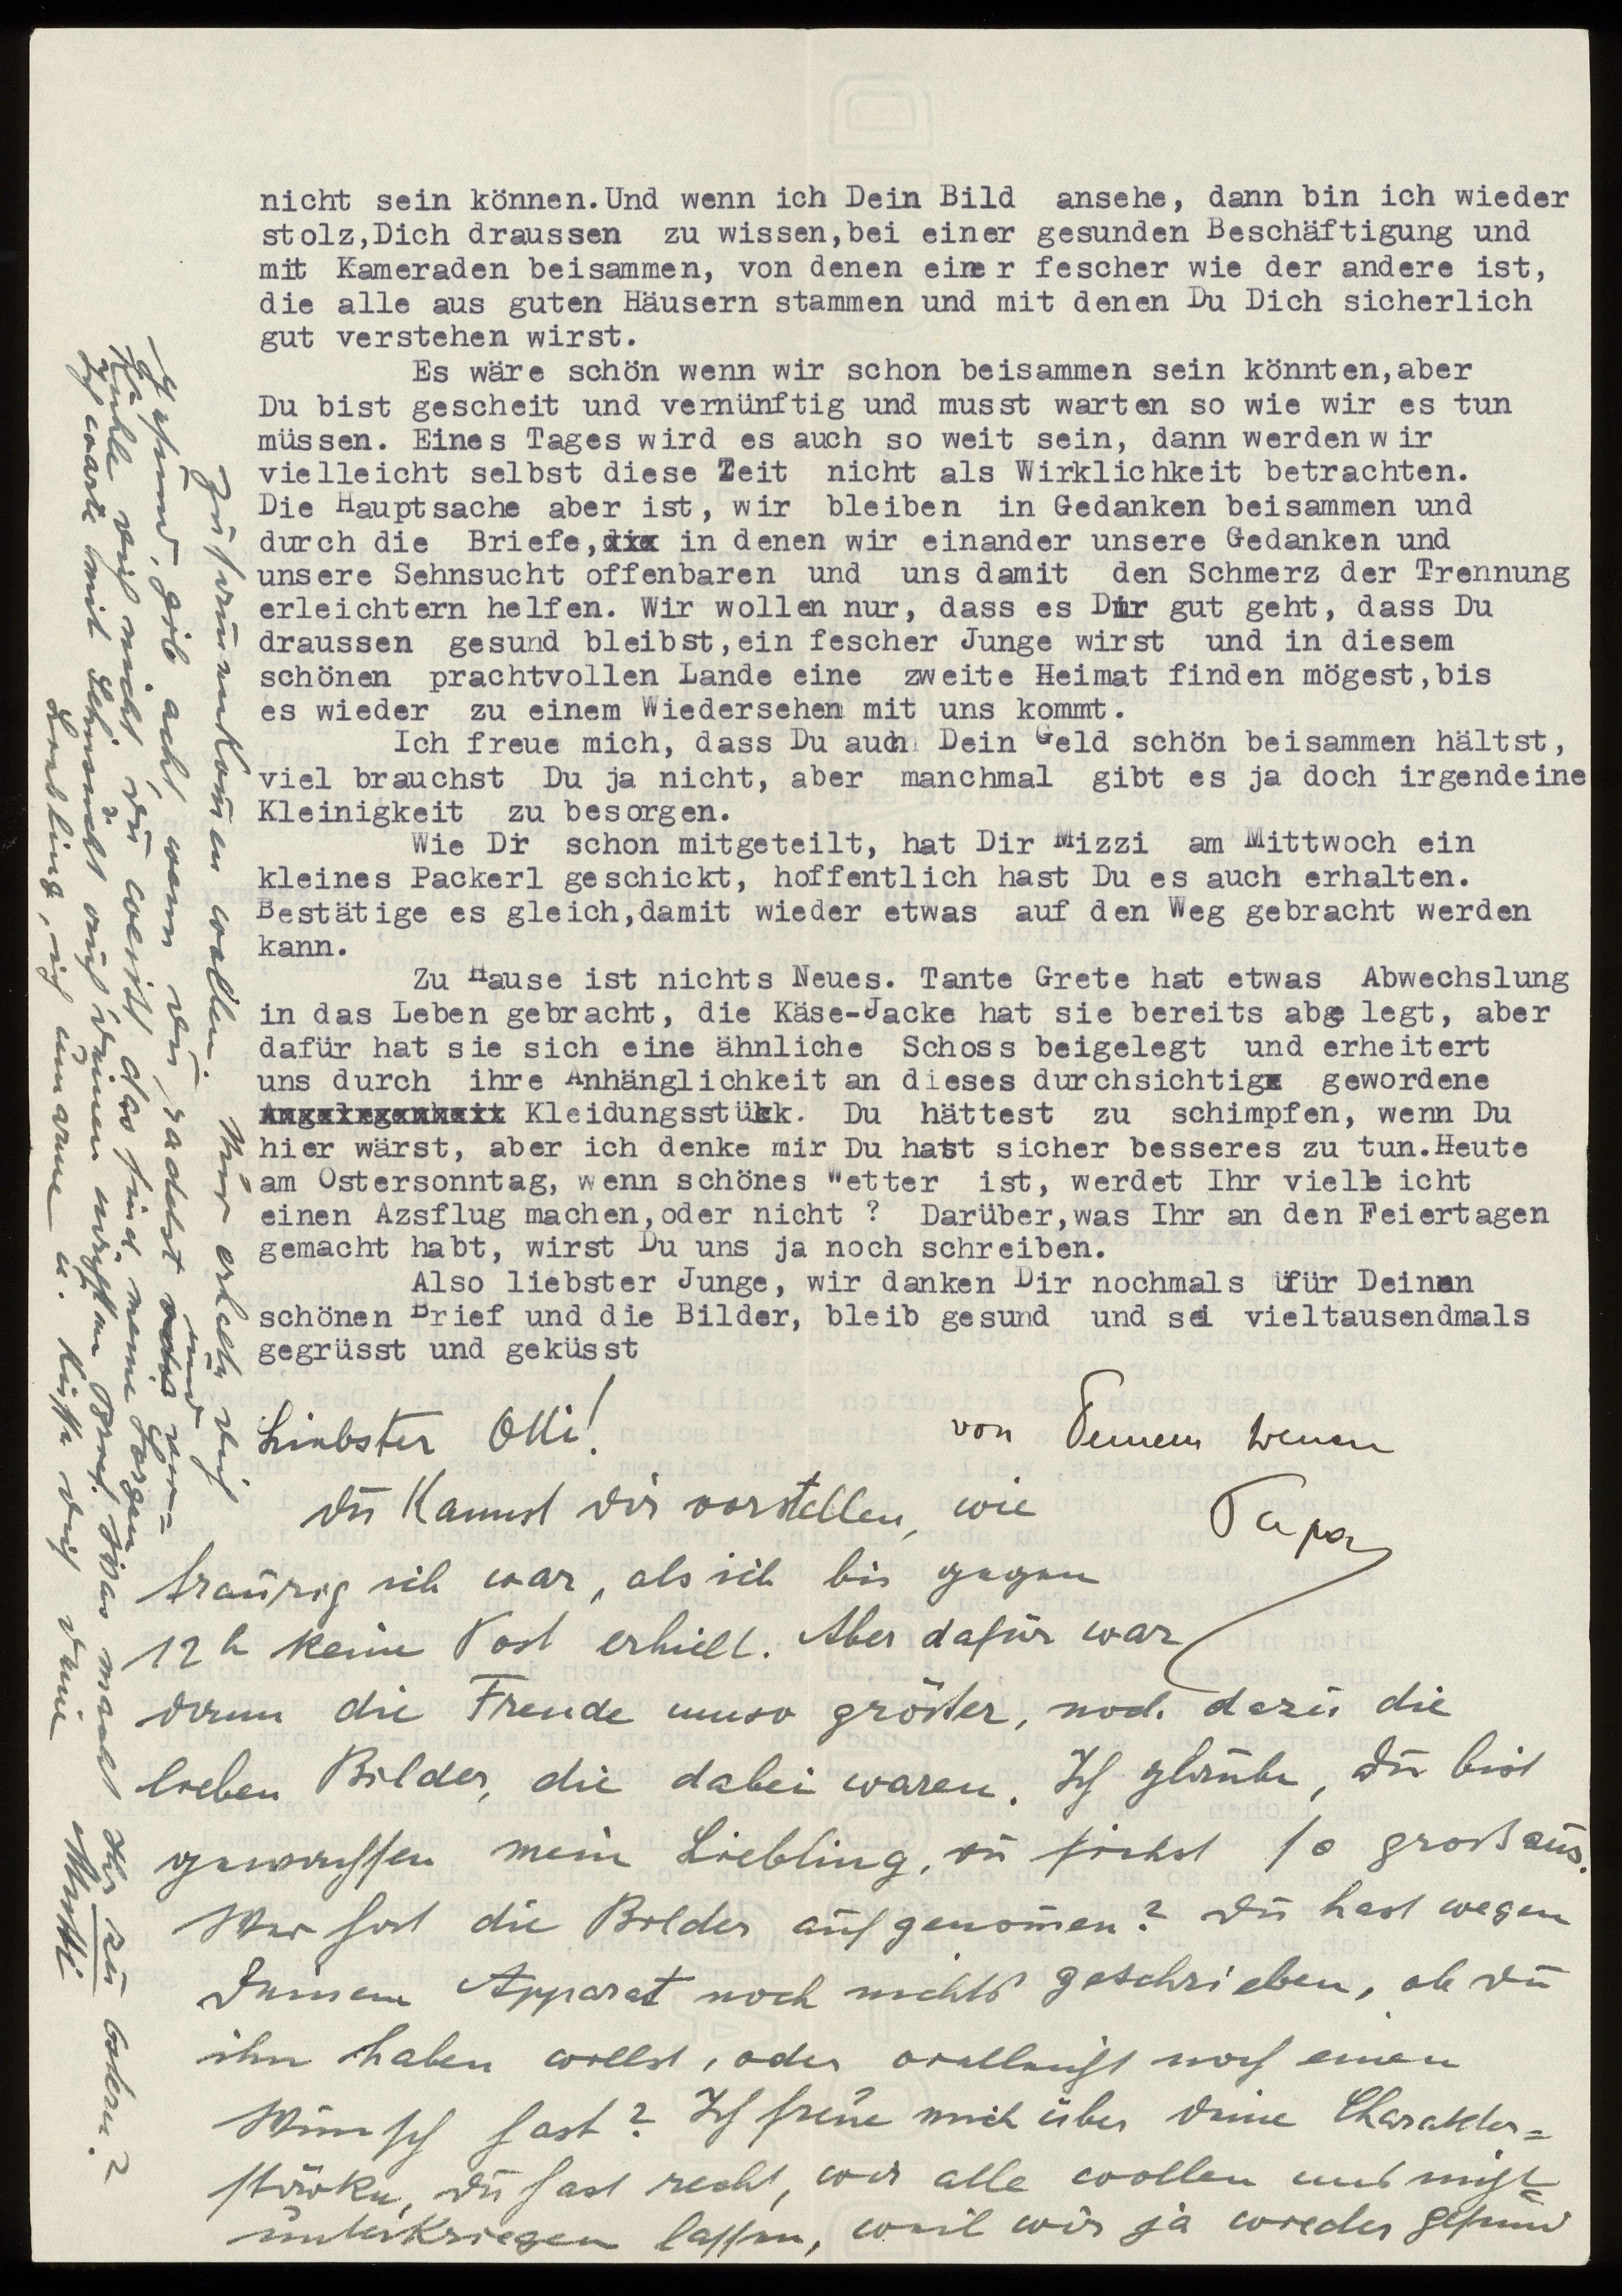 nicht sein können.Und wenn ich Dein Bild ansehe, dann bin ich wieder
stolz,Dich draussen zu wissen,bei einer gesunden Beschäftigung und
mit Kameraden beisammen, von denen einer fescher wie der andere ist,
die alle aus guten Häusern stammen und mit denen Du Dich sicherlich
gut verstehen wirst.
Es wäre schön wenn wir schon beisammen sein könnten,aber
Du bist gescheit und vernünftig und musst warten so wie wir es tun
müssen. Eines Tages wird es auch so weit sein, dann werden wir
vielleicht selbst diese Zeit nicht als Wirklichkeit betrachten.
Die Hauptsache aber ist, wir bleiben in Gedanken beisammen und
durch die Briefe, in denen wir einander unsere Gedanken und
unsere Sehnsucht offenbaren und uns damit den Schmerz der Trennung
erleichtern helfen. Wir wollen nur, dass es Dir gut geht, dass Du
draussen gesund bleibst,ein fescher Junge wirst und in diesem
schönen prachtvollen Lande eine zweite Heimat finden mögest,bis
es wieder zu einem Wiedersehen mit uns kommt.
Ich freue mich, dass Du auch Dein Geld schön beisammen hältst,
viel brauchst Du ja nicht, aber manchmal gibt es ja doch irgendeine
Kleinigkeit zu besorgen.
Wie Dir schon mitgeteilt, hat Dir Mizzi am Mittwoch ein
kleines Packerl geschickt, hoffentlich hast Du es auch erhalten.
Bestätige es gleich,damit wieder etwas auf den Weg gebracht werden
kann.
Zu Hause ist nichts Neues. Tante Grete hat etwas Abwechslung
in das Leben gebracht, die Käse-Jacke hat sie bereits abge legt, aber
dafür hat sie sich eine ähnliche Schoss beigelegt und erheitert
uns durch ihre Anhänglichkeit an dieses durchsichtig gewordene
Kleidungsstück. Du hättest zu schimpfen, wenn Du
hier wärst, aber ich denke mir Du hast sicher besseres zu tun.Heute
am Ostersonntag, wenn schönes Wetter ist, werdet Ihr vielleicht
einen Azsflug machen,oder nicht ? Darüber,was Ihr an den Feiertagen
gemacht habt, wirst Du uns ja noch schreiben.
Also liebster Junge, wir danken Dir nochmals für Deinen
schönen Brief und die Bilder, bleib gesund und sei vieltausendmals
gegrüsst und geküsst
von Deinem treuen
Papa
Liebster Olli!
Du kannst Dir vorstellen, wie
traurig ich war, als ich bis gegen
12 h keine Post erhielt. Aber dafür war
dann die Freude umso größer, noch dazu die
lieben Bilder, die dabei waren. Ich glaube, Du bist
gewachsen mein Liebling, Du siehst so groß aus.
Wer hat die Bilder aufgenommen? Du hast wegen
Deinem Apparat noch nichts geschrieben, ob Du
ihn haben willst, oder vielleicht noch einen
Wunsch hast? Ich freue mich über Deine Charakter=
stärke, Du hast recht, wir alle wollen uns nicht
unterkriegen lassen, weil wir ja wieder gesund
zusammenkommen wollen. Nur erhalte Dich
gesund, gib acht, wenn Du radelst und ver=
kühle Dich nicht, Du weißt, das sind meine Sorgen
Ich warte mit Sehnsucht auf Deinen nächsten Brief. Was macht Ihr zu Ostern?
Liebling, ich umarme u. küsse Dich Deine
Mutti